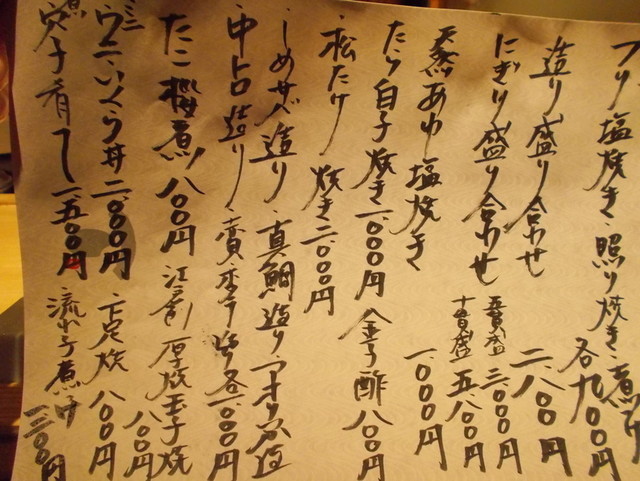 ブリ塩焼き・照り焼き・煮つけ 各九〇〇円
造り盛り合わせ 二、八〇〇円
にぎり盛り合わせ 五貫盛 二、〇〇〇円 十貫盛 五、八〇〇円
天然あゆ塩焼き 一、〇〇〇円
たら白子焼き 一、〇〇〇円 酢 八〇〇円
松たけ焼き 二、〇〇〇円
しめサバ造り・真鯛造り・アオリイカ造
中トロ造り 造り 各一、〇〇〇円
たこ桜煮 八〇〇円 江戸前厚焼玉子焼 八〇〇円
ウニ・いくら丼 二、〇〇〇円 下足焼 八〇〇円
煮穴子肴 一、五〇〇円 流れ子煮付 一、三〇〇円